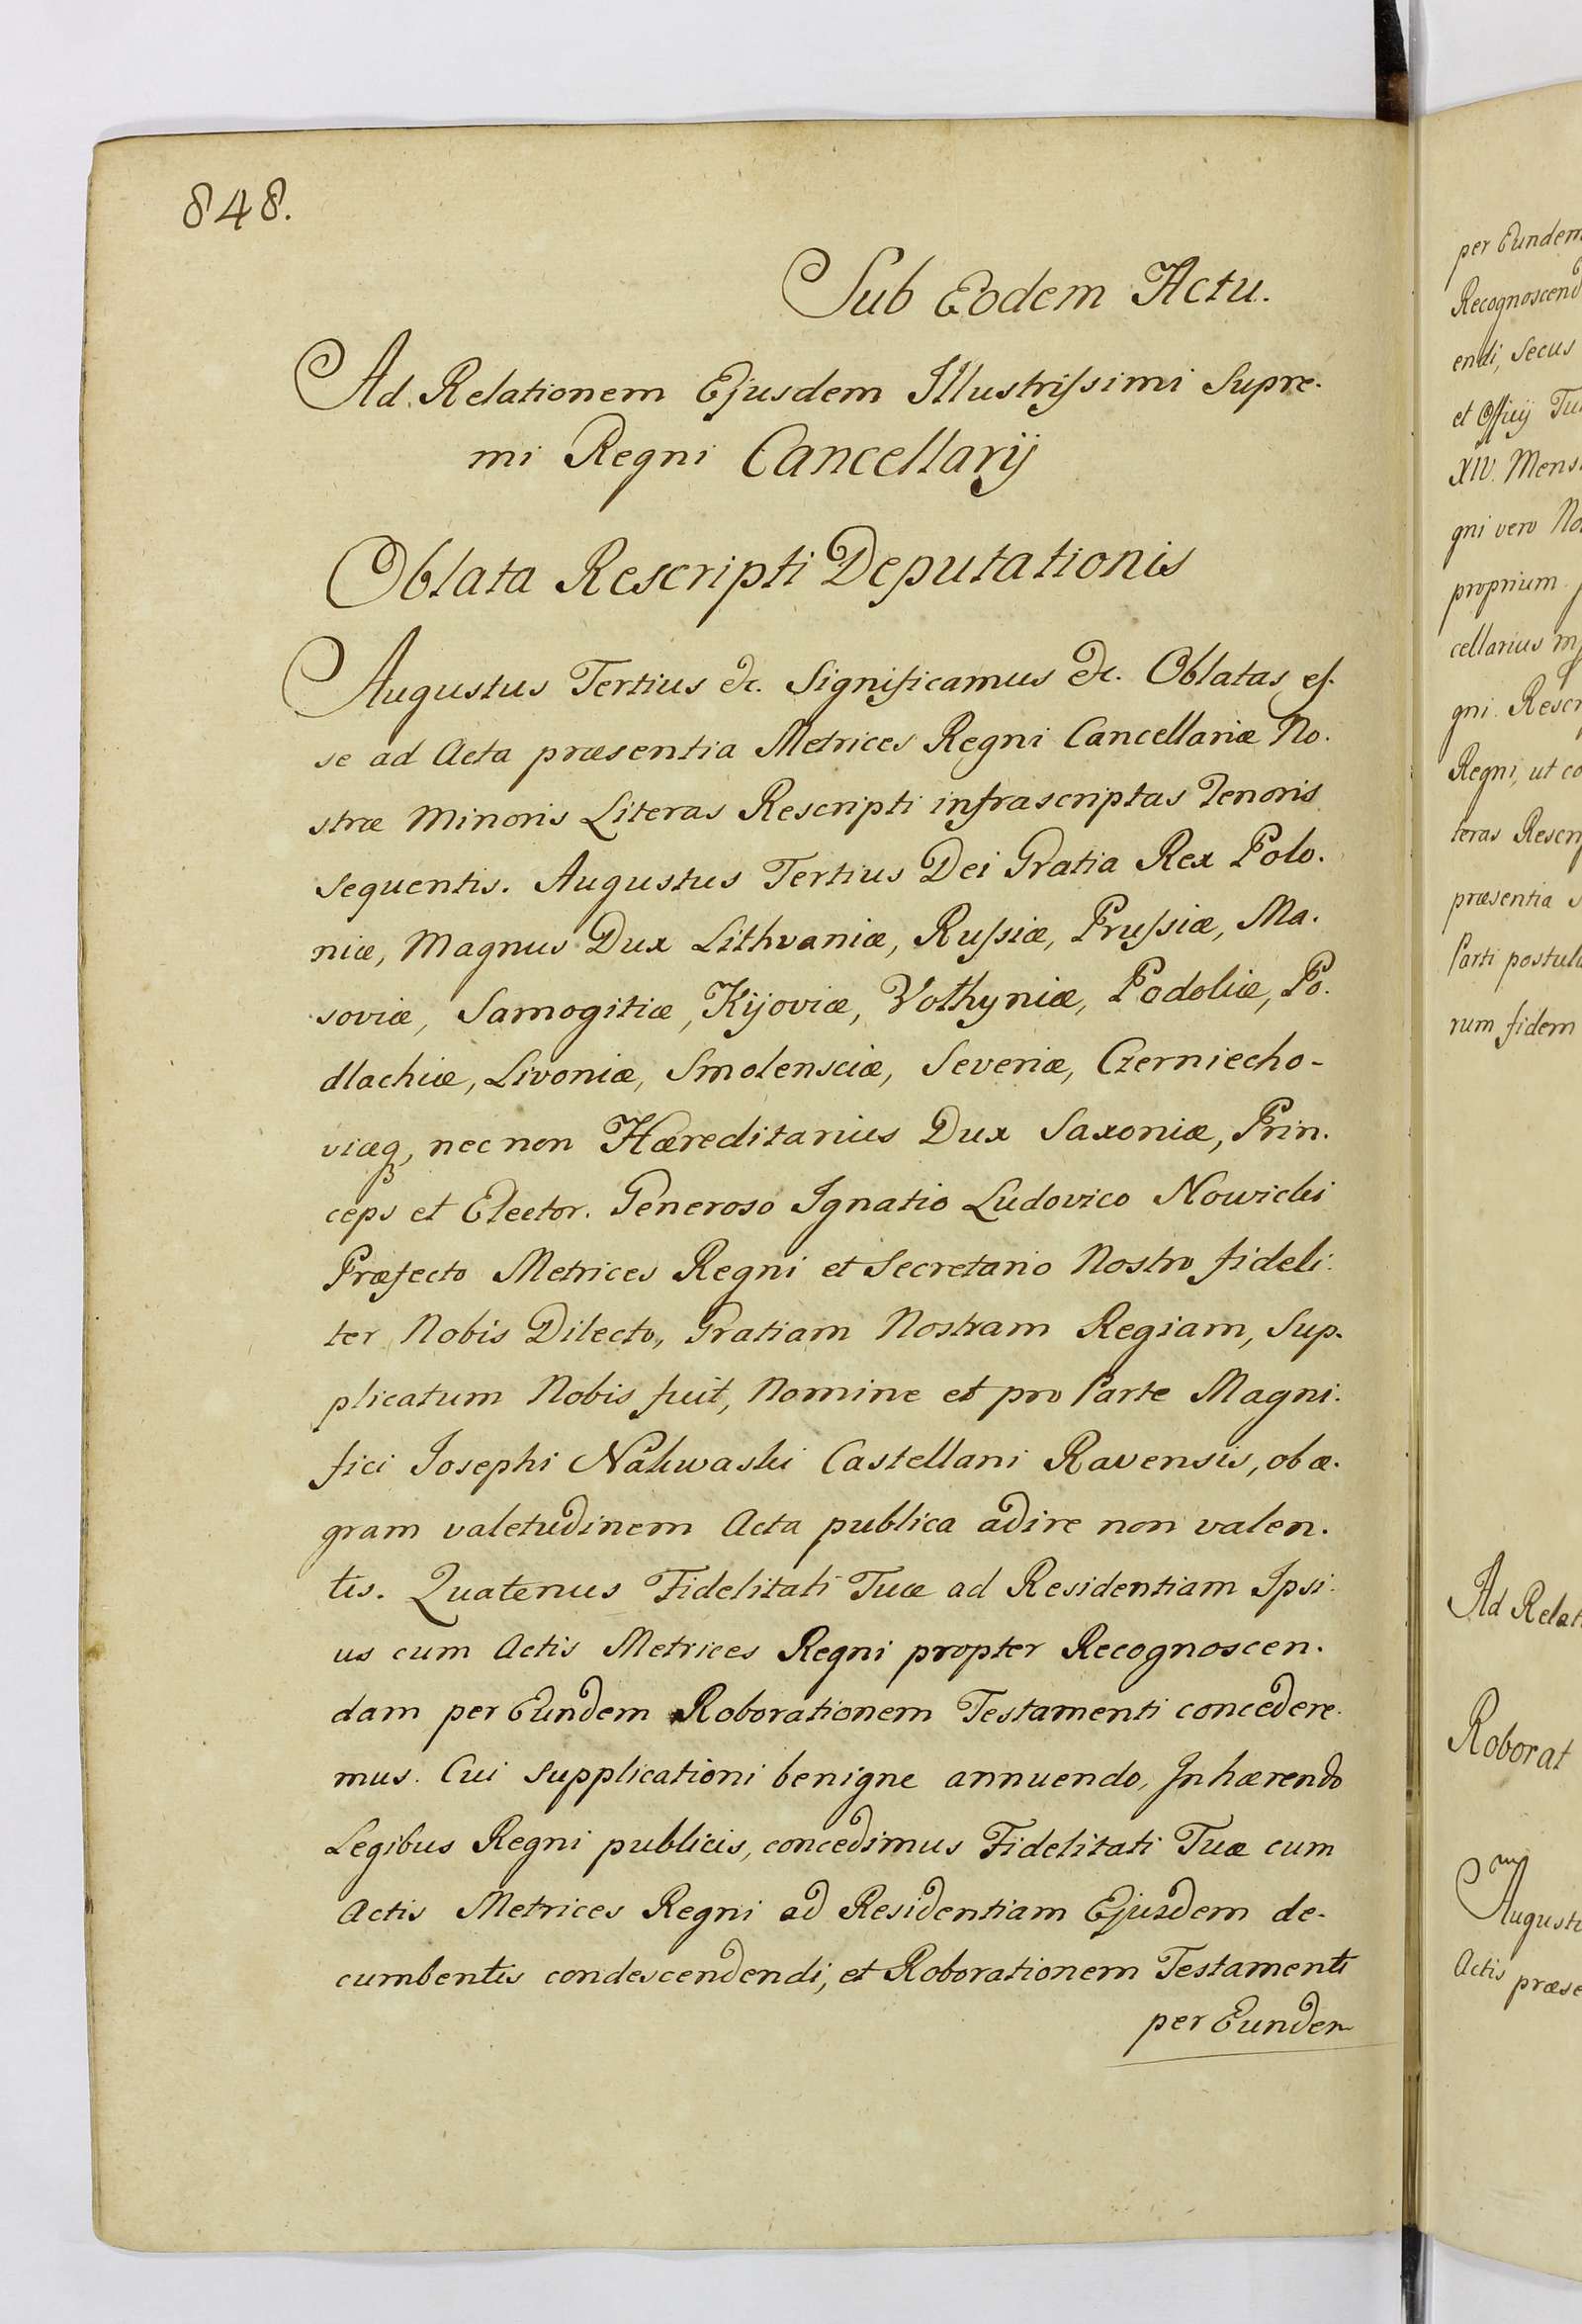 848.
Sub Eodem Actu.
Ad Relationem Ejusdem Illustrissimi Supre-
mi Regni Cancellarij
Oblata Rescripti Deputationis
Augustus Tertius &c. Significamus &c. Oblatas es-
se ad Acta præsentia Metrices Regni Cancellariæ No-
stræ Minoris Literas Rescripti infrascriptas Tenoris
sequentis. Augustus Tertius Dei Gratia Rex Polo-
niæ, Magnus Dux Lithvaniæ, Russiæ, Prussiæ, Ma-
soviæ, Samogitiæ, Kijoviæ, Volhyniæ, Podoliæ, Po-
dlachiæ, Livoniæ, Smolensciæ, Severiæ, Czerniecho-
viæq, nec non Hæreditarius Dux Saxoniæ, Prin-
ceps et Elector. Generoso Ignatio Ludovico Nowicki
Præfecto Metrices Regni et Secretario Nostro fideli-
ter Nobis Dilecto, Gratiam Nostram Regiam, Sup-
plicatum Nobis fuit, Nomine et pro Parte Magni-
fici Josephi Nakwaski Castellani Ravensis, ob æ-
gram valetudinem Acta publica adire non valen-
tis. Quatenus Fidelitati Tuæ ad Residentiam Ipsi-
us cum Actis Metrices Regni propter Recognoscen-
dam per Eundem Roborationem Testamenti concedere-
mus. Cui supplicationi benigne annuendo, Inhærendo
Legibus Regni publicis, concedimus Fidelitati Tuæ cum
Actis Metrices Regni ad Residentiam Ejusdem de-
cumbentis condescendendi, et Roborationem Testamenti
per Eundem
per Eundem
Recognoscend
endi, Secus
et Officij
XIV. Mens
gni vero
proprium
cellarius
gni Rescr
Regni, ut co
teras Rescrip
præsentia
Parti postula
rum fidem
Ad Relat
Roborat
Augustu
Actis præse